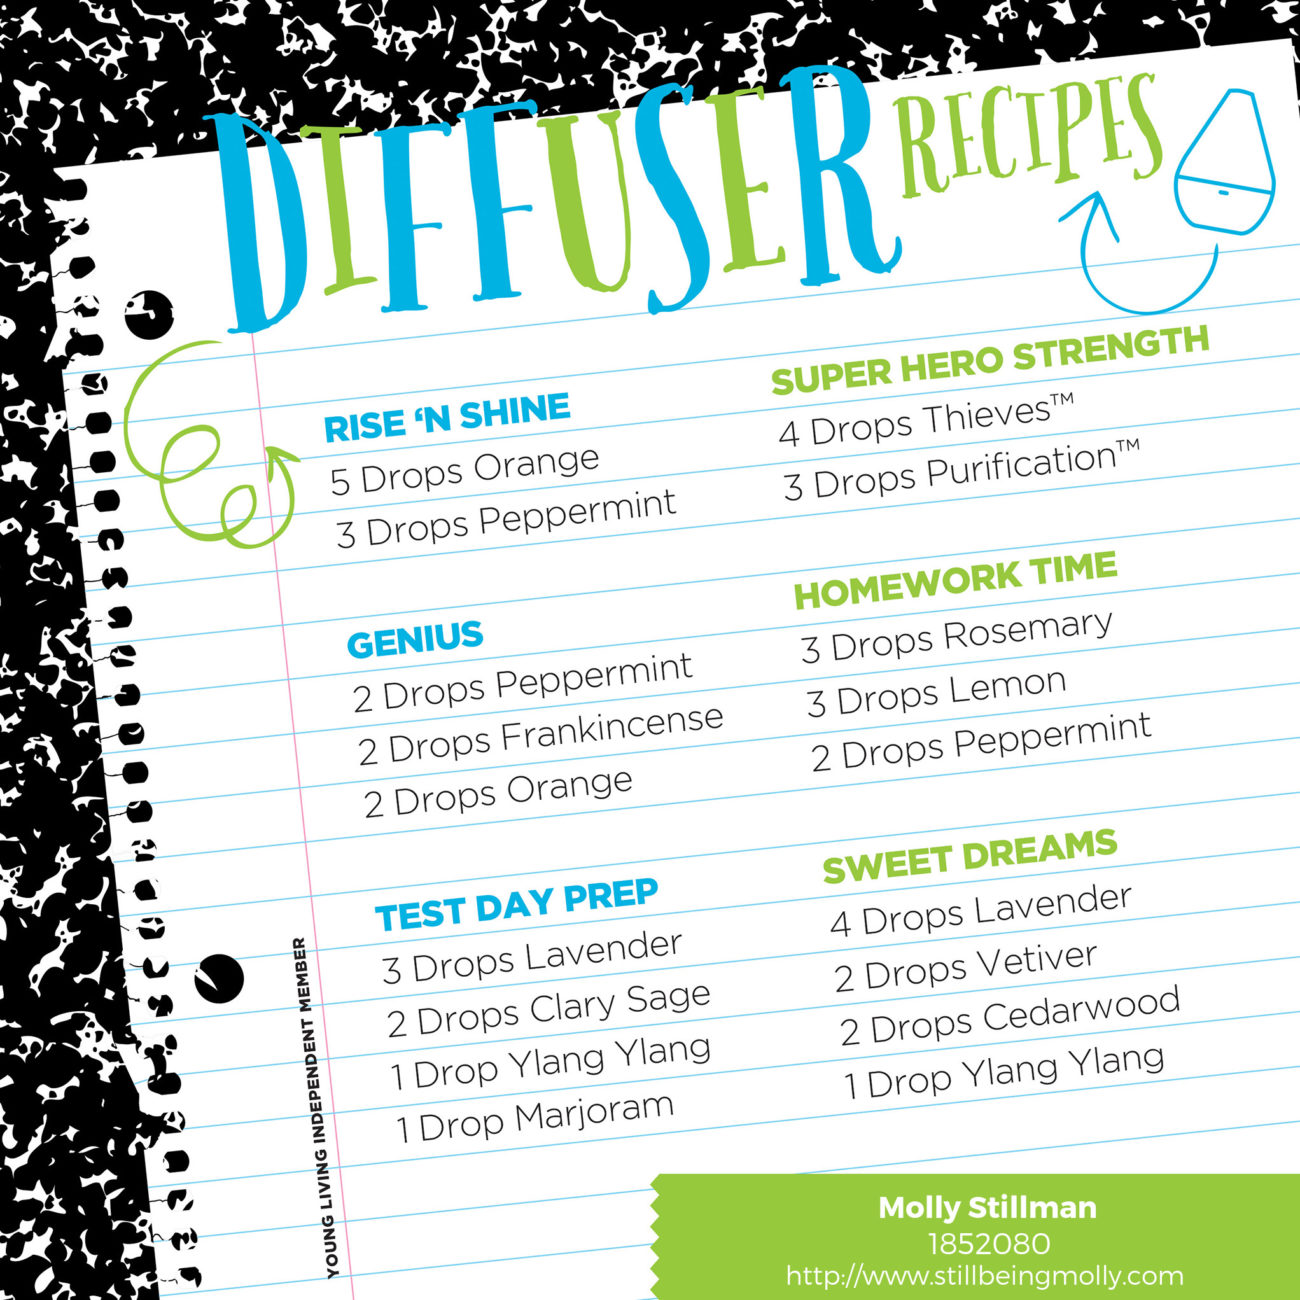 DIFFUSER RECIPES
RISE ‘N SHINE
5 Drops Orange
3 Drops Peppermint
GENIUS
2 Drops Peppermint
2 Drops Frankincense
2 Drops Orange
TEST DAY PREP
3 Drops Lavender
2 Drops Clary Sage
1 Drop Ylang Ylang
1 Drop Marjoram
SUPER HERO STRENGTH
4 Drops Thieves™
3 Drops Purification™
HOMEWORK TIME
3 Drops Rosemary
3 Drops Lemon
2 Drops Peppermint
SWEET DREAMS
4 Drops Lavender
2 Drops Vetiver
2 Drops Cedarwood
1 Drop Ylang Ylang
YOUNG LIVING INDEPENDENT MEMBER
Molly Stillman
1852080
http://www.stillbeingmolly.com